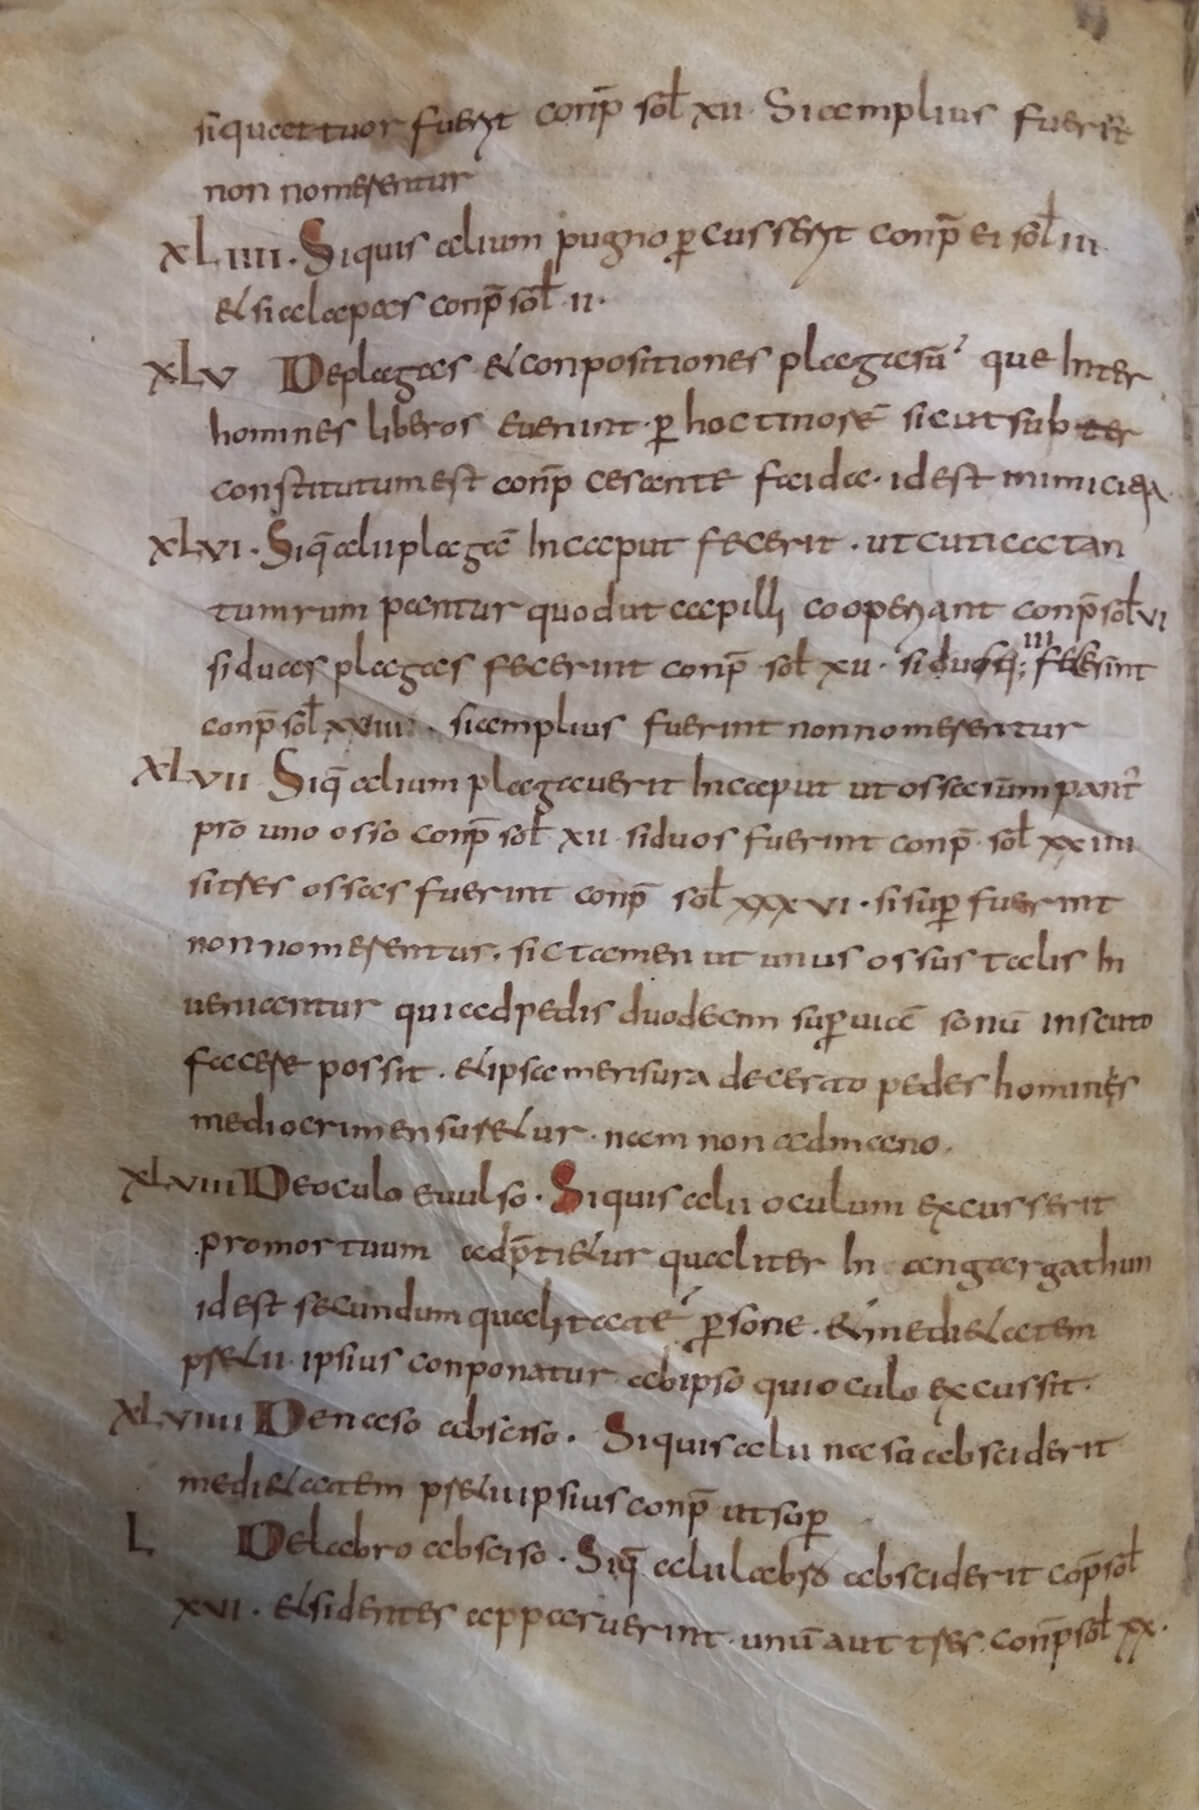 si quattuor fuerit conp̄ sol xii. Si amplius fuerit
non nomerentur
XLIIII. Siquis alium pugno ꝑcusserit conp̄ ei sol iii.
Et si alapas conp̄ sol ii.
XLV Deplagas et conpositiones plagarū que Inter
homines liberos evenint. ꝑ hoc tinorē sicut subter
constitutum est conp̄ cesante faida. id est inimicitia
XLVI. Siq̄ alii plagā In caput fecerit. ut cutica tan
tum rumpantur quod ut capilli cooperiant conp̄ sol vi
si duas plagas fecerint conp̄ sol xii. si usq; iii fecerint
conp̄ sol xviiii. si amplius fuerint non nomerentur
XLVII Siq̄ alium plagaverit In caput ut ossa rumpant
pro uno osso conp̄ sol xii si duos fuerint conp̄ sol xxiiii
si tres ossas fuerint conp̄ sol xxxvi. si suꝑ fuerint
non nomerentur. sic tamen ut unus ossus talis In
veniantur qui ad pedis duodecim suꝑ viā sonū in scuto
facere possit. et ipsa mensura de certo pedes hominis
mediocri mensuretur. nam non ad mano.
XLVIII De oculo evulso. Siquis alii oculum excusserit
pro mortuum adp̄tietur qualiter In angargathun
id est secundum qualitatē ꝑsone. et medietatem
pretii ipsius conponatur ab ipso qui oculo excussit.
XLVIIII De naso absciso. Siquis alii nasa absciderit
medietatem pretii ipsius conp̄ ut suꝑ
L De labro absciso. Siq̄ alii labro absciderit cop̄ sol
xvi. et si dentes apparuerint. unū aut tres. conp̄ sol xx.